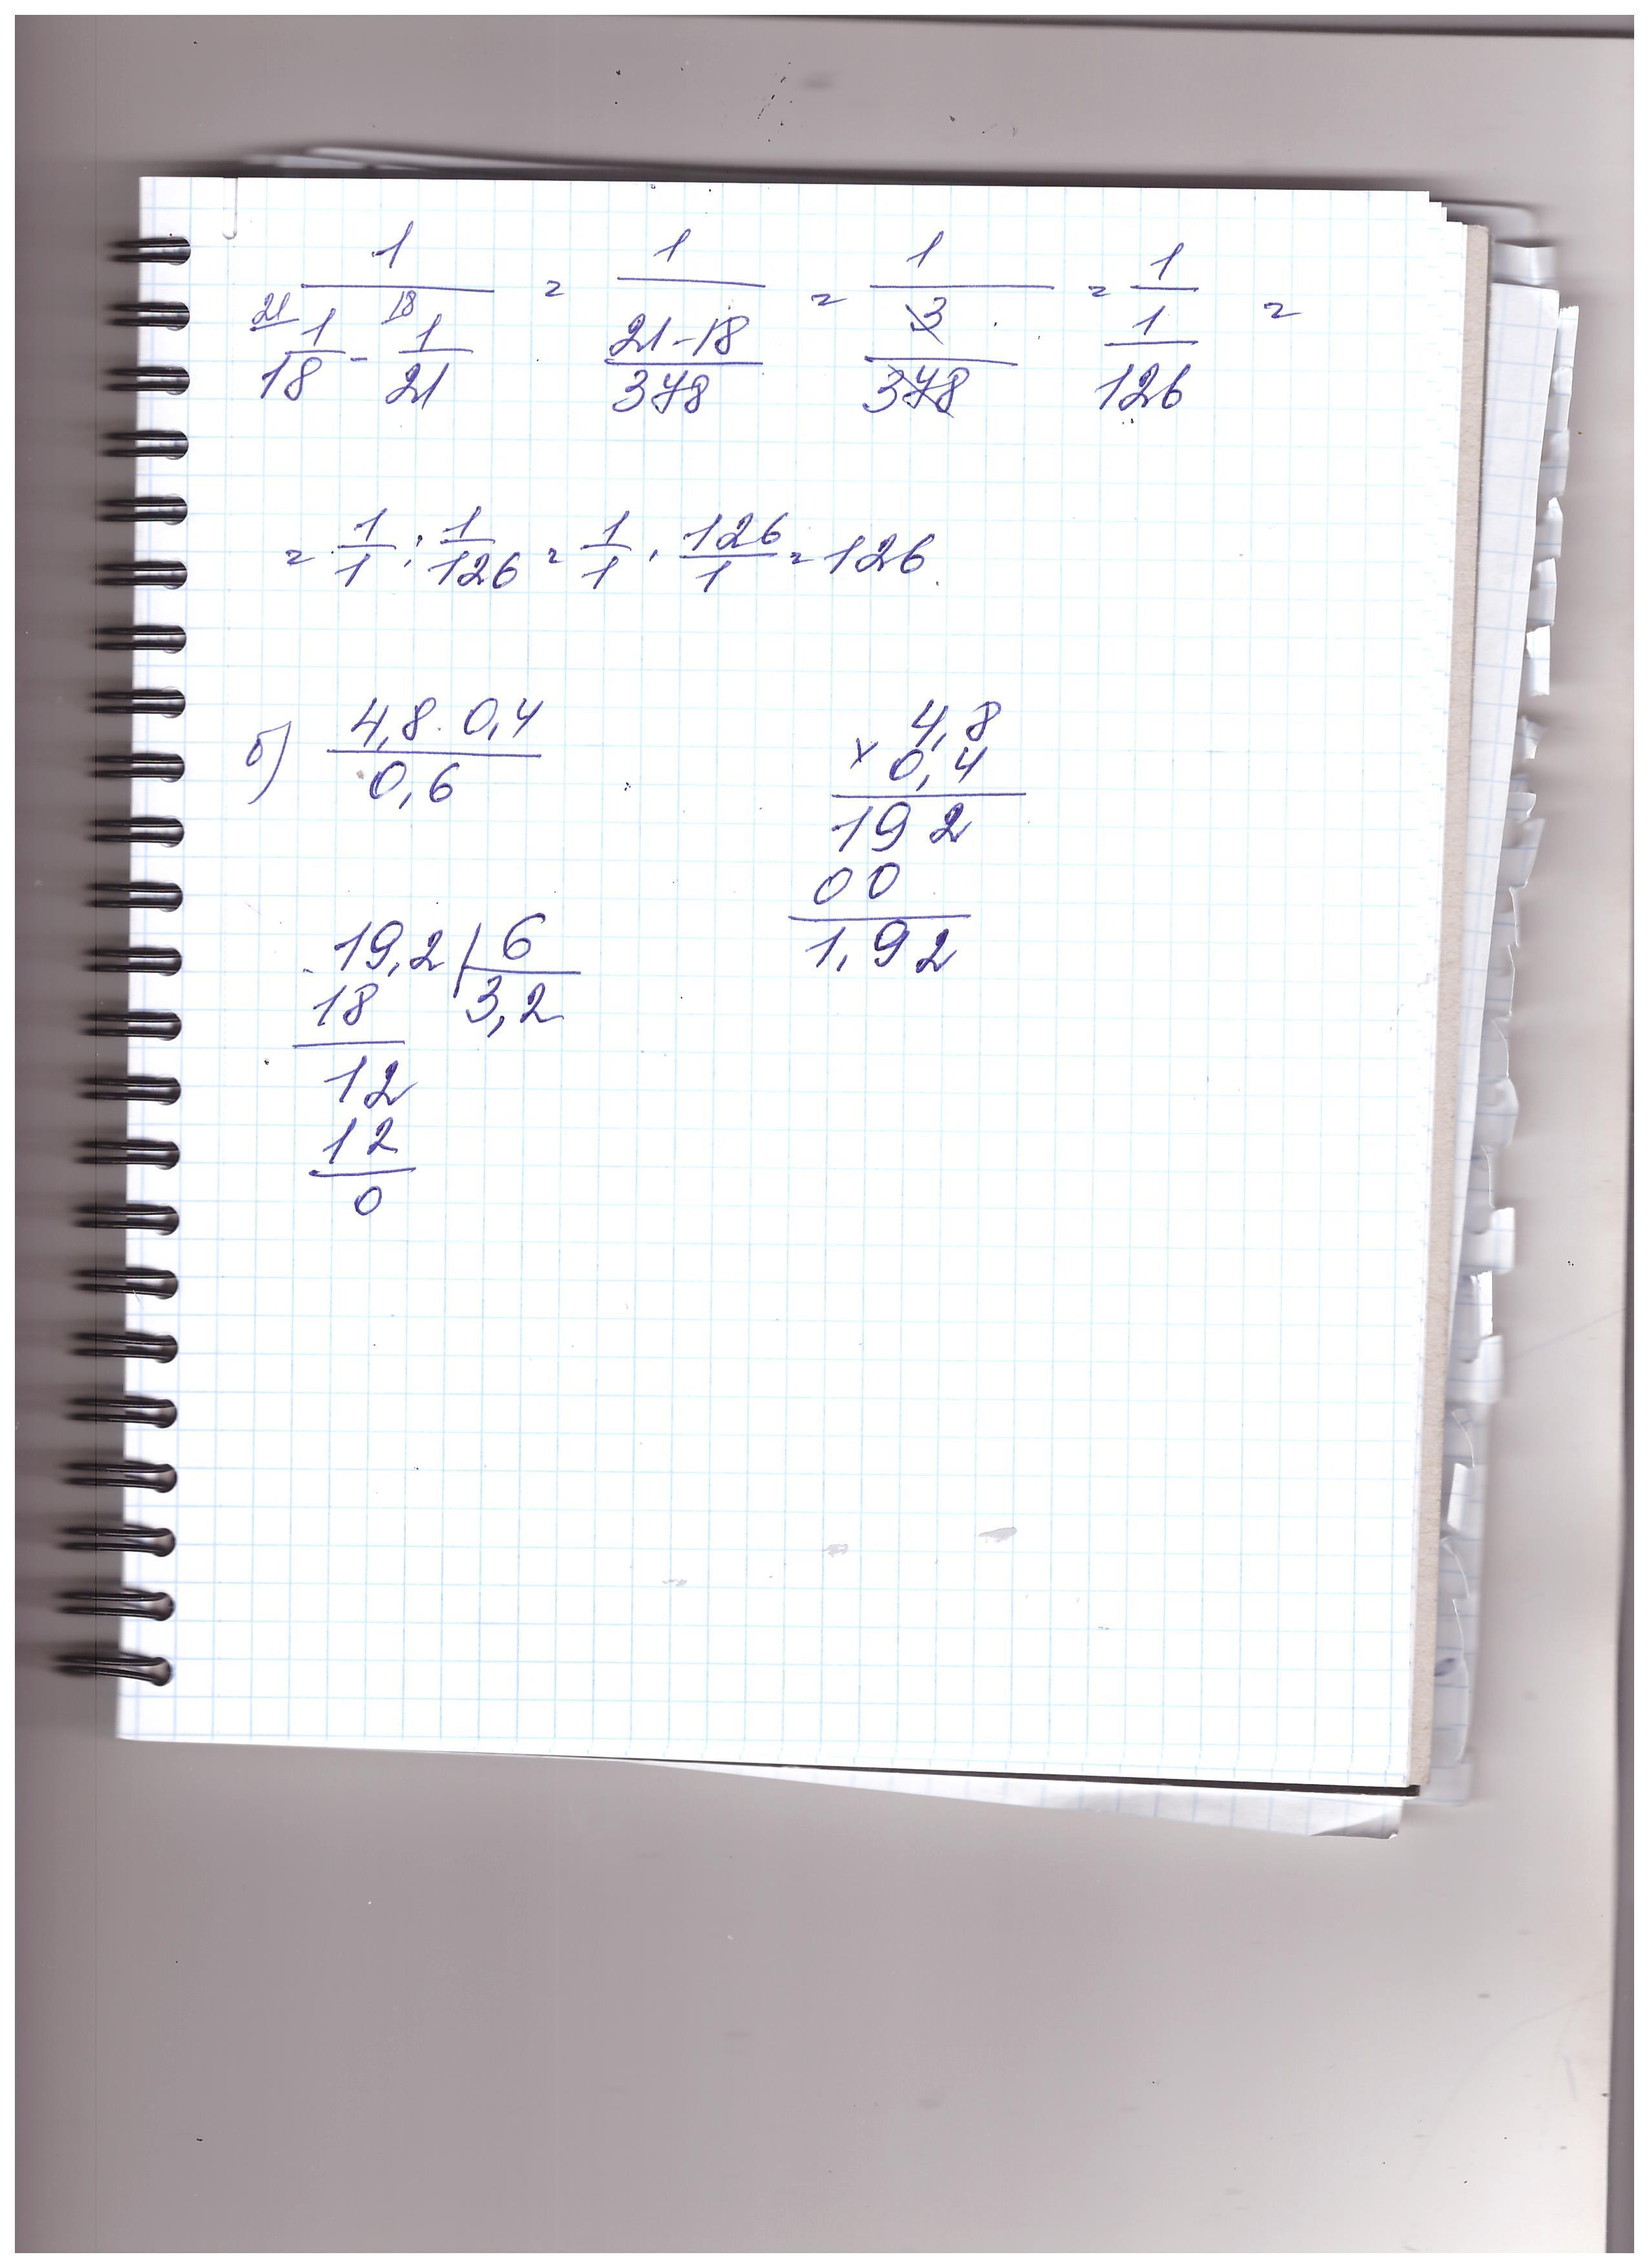 1 / (21 1/18 - 18 1/21) = 1 / ((21-18)/378) = 1 / (3/378) = 1 / (1/126) =
= 1/1 : 1/126 = 1/1 · 126/1 = 126
б) (4,8 · 0,4) / 0,6
4,8
× 0,4
192
00
1,92
19,2 | 6
18 3,2
12
12
0